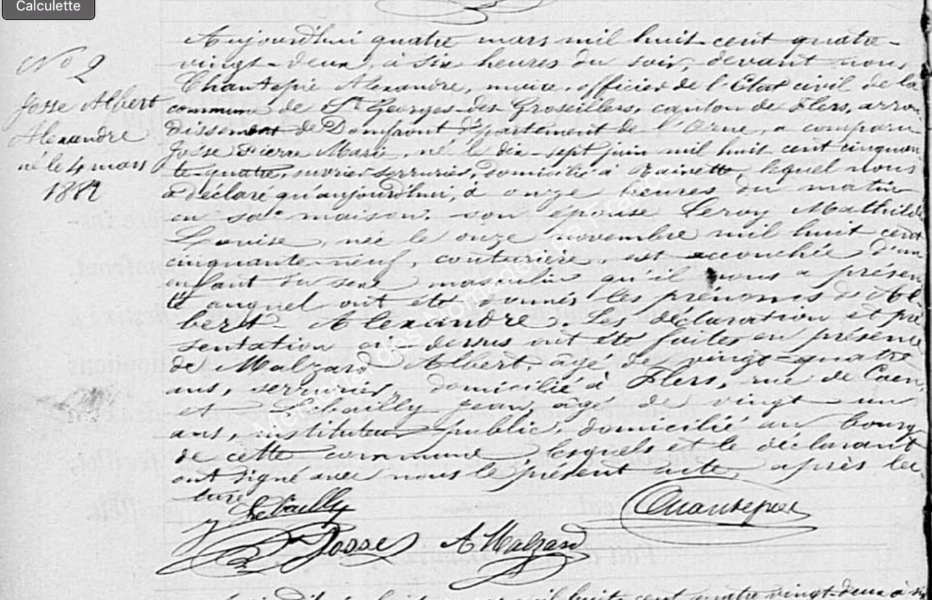 Calculette
Aujourd'hui quatre mars mil huit cent quatre-
vingt-deux, à six heures du soir, devant nous,
N° 2
Chantepie Alexandre, maire, officier de l'Etat civil de la
Josse Albert
commune de St Georges des Groseillers, canton de Flers, arron
Alexandre
dissement de Domfront département de l'Orne, a comparu
né le 4 mars
Josse Pierre Marie, né le dix-sept juin mil huit cent cinquan
1882
te-quatre, ouvrier serrurier, domicilié à lequel nous
a déclaré qu'aujourd'hui, à onze heures du matin
en sa maison, son épouse Leroy Mathilde
Louise, née le onze novembre mil huit cent
cinquante-neuf, couturière, est accouchée d'un
enfant du sexe masculin qu'il nous a présen
té auquel ont été donnés les prénoms de Al-
bert Alexandre. Les déclaration et pré
sentation ci-dessus ont été faites en présence
de Malzard Albert, âgé de vingt-quatre
ans, serrurier, domicilié à Flers, rue de Caen,
et Lebailly Jean, âgé de vingt un
ans, instituteur public, domicilié au bourg
de cette commune lesquels et le déclarant
ont signé avec nous le présent acte, après lec
ture
Lebailly
Chantepie
Josse
A Malzard
mil huit cent quatre vingt-deux à